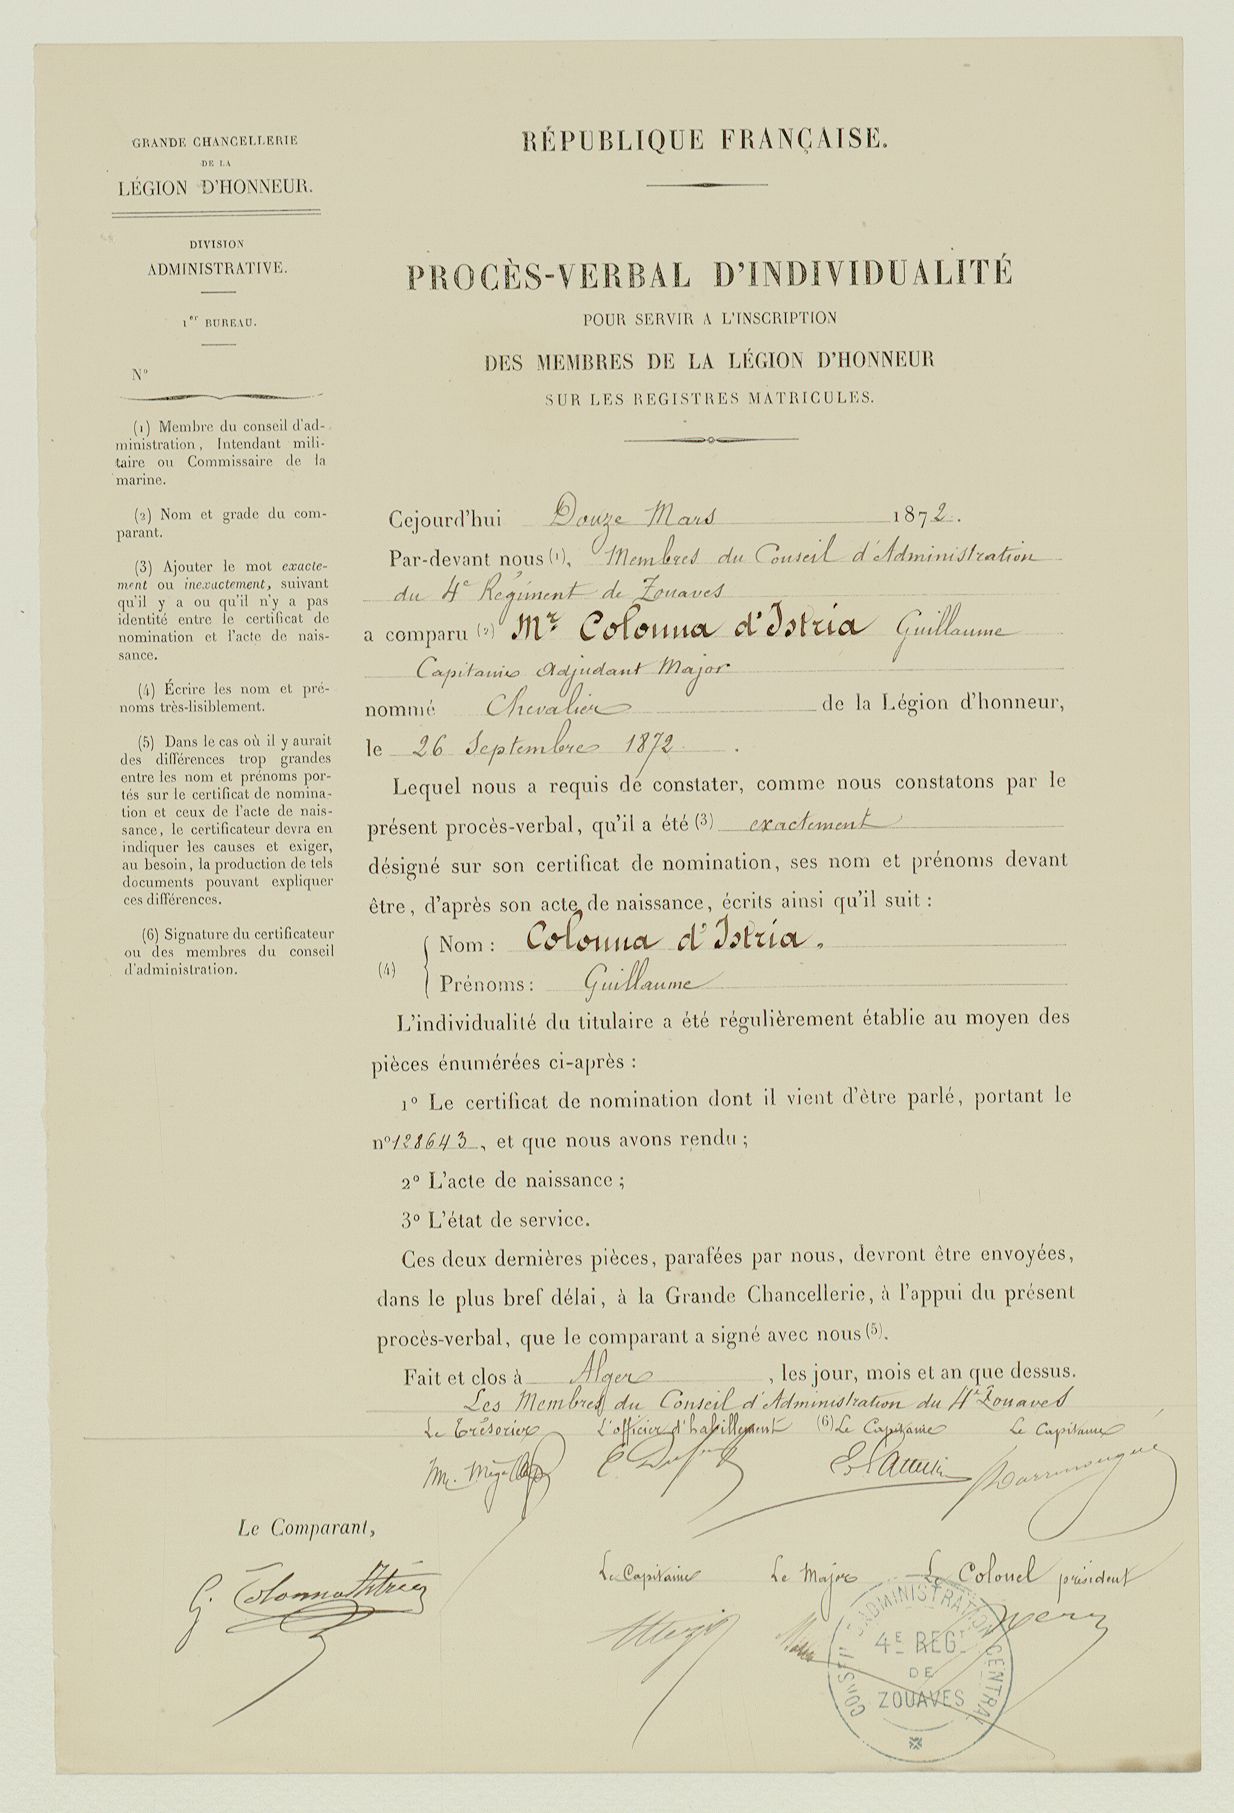 GRANDE CHANCELLERIE
DE LA
LÉGION D'HONNEUR.
DIVISION
ADMINISTRATIVE.
1er BUREAU.
N°
(1) Membre du conseil d'ad-
ministration, Intendant mili-
taire ou Commissaire de la
marine.
(2) Nom et grade du com-
parant.
(3) Ajouter le mot exacte-
ment ou inexactement, suivant
qu'il y a ou qu'il n'y a pas
identité entre le certificat de
nomination et l'acte de nais-
sance.
(4) Écrire les nom et pré-
noms très-lisiblement.
(5) Dans le cas où il y aurait
des différences trop grandes
entre les nom et prénoms por-
tés sur le certificat de nomina-
tion et ceux de l'acte de nais-
sance, le certificateur devra en
indiquer les causes et exiger,
au besoin, la production de tels
documents pouvant expliquer
ces différences.
(6) Signature du certificateur
ou des membres du conseil
d'administration.
RÉPUBLIQUE FRANÇAISE.
PROCÈS-VERBAL D'INDIVIDUALITÉ
POUR SERVIR A L'INSCRIPTION
DES MEMBRES DE LA LÉGION D'HONNEUR
SUR LES REGISTRES MATRICULES.
Cejourd'hui Douze Mars 1872.
Par-devant nous (1), Membres du Conseil d'Administration
du 4e Régiment de Zouaves
a comparu (2) Mr Colonna d'Istria Guillaume
Capitaine Adjudant Major
nommé Chevalier de la Légion d'honneur,
le 26 Septembre 1872.
Lequel nous a requis de constater, comme nous constatons par le
présent procès-verbal, qu'il a été (3) exactement
désigné sur son certificat de nomination, ses nom et prénoms devant
être, d'après son acte de naissance, écrits ainsi qu'il suit :
(4) { Nom : Colonna d'Istria.
Prénoms : Guillaume
L'individualité du titulaire a été régulièrement établie au moyen des
pièces énumérées ci-après :
1° Le certificat de nomination dont il vient d'être parlé, portant le
n° 128643, et que nous avons rendu ;
2° L'acte de naissance ;
3° L'état de service.
Ces deux dernières pièces, parafées par nous, devront être envoyées,
dans le plus bref délai, à la Grande Chancellerie, à l'appui du présent
procès-verbal, que le comparant a signé avec nous (5).
Fait et clos à Alger, les jour, mois et an que dessus.
Les Membres du Conseil d'Administration du 4e Zouaves
Le Trésorier L'officier d'habillement (6) Le Capitaine Le Capitaine
Le Comparant,
G. Colonna d'Istria
Le Capitaine Le Major Le Colonel président
CONSEIL D'ADMINISTRATION CENTRAL
4E REGT
DE
ZOUAVES